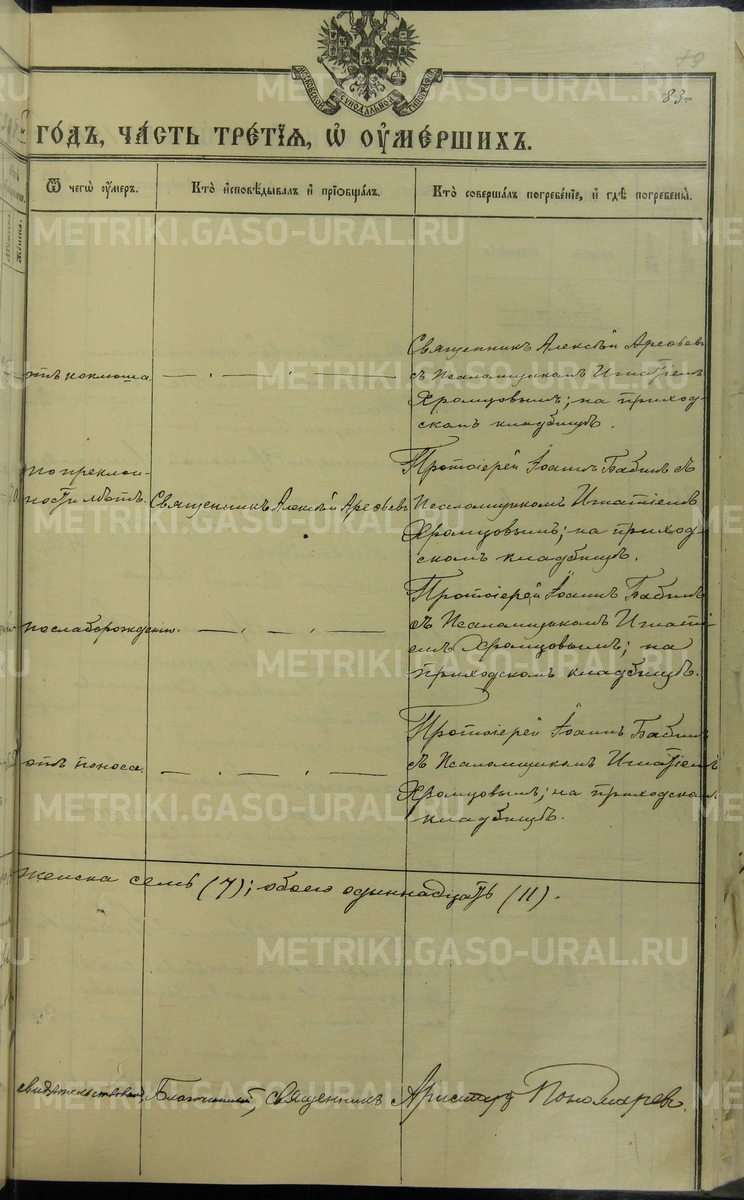 МОСКОВСКОЙ СѴНОДАЛЬНОЙ ТИПОГРАФІИ
83
ГО́ДЪ, ЧА́СТЬ ТРЕ́ТІѦ, Ѡ҆ ОУ҆МЕ́РШИХЪ.
Ѿ чегѡ̀ оу҆́меръ.
Кто̀ и҆сповѣ́дывалъ и҆ прїѡбща́лъ.
Кто̀ соверша́лъ погребе́нїе, и҆ гдѣ̀ погребены̀.
отъ коклюша.
Священникъ Алексѣй Арефьевъ
съ Псаломщикомъ Игнатіемъ
Храмцовымъ; на приход-
скомъ кладбищѣ.
по преклон-
ности лѣтъ.
Священникъ Алексѣй Арефьевъ
Протоіерей Іоаннъ Бабинъ съ
Псаломщикомъ Игнатіемъ
Храмцовымъ; на приход-
скомъ кладбищѣ.
Протоіерей Іоаннъ Бабинъ
съ Псаломщикомъ Игнаті-
емъ Храмцовымъ; на
приходскомъ кладбищѣ.
отъ поноса.
Протоіерей Іоаннъ Бабинъ
съ Псаломщикомъ Игнатіемъ
Храмцовымъ; на приходскомъ
кладбищѣ.
женска семь (7); обоего одиннадцать (11).
Благочинный, Священникъ Аристархъ Пономаревъ.
METRIKI.GASO-URAL.RU